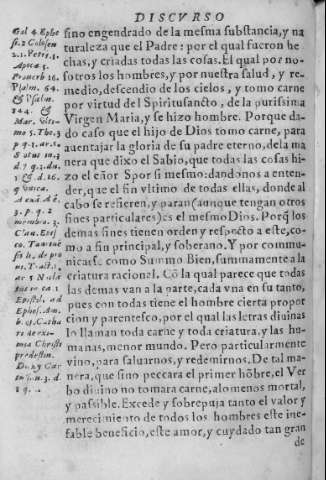 DISCVRSO
sino engendrado de la mesma substancia, y na
turaleza que el Padre: por el qual fueron he
chas, y criadas todas las cosas. El qual por no-
sotros los hombres, y por nuestra salud, y re-
medio, descendio de los cielos, y tomo carne
por virtud del Spiritusancto, de la purissima
Virgen Maria, y se hizo hombre. Porque da-
do caso que el hijo de Dios tomo carne, para
auentajar la gloria de su padre eterno, de la ma
nera que dixo el Sabio, que todas las cosas hi-
zo el eñor Spor si mesmo: dandonos a enten-
der, que el fin vltimo de todas ellas, donde al
cabo se refieren, y paran (aunque tengan otros
fines particulares) es el mesmo Dios. Porq̃ los
demas fines tienen orden y respecto a este, co-
mo a fin principal, y soberano. Y por commu-
nicarse como Summo Bien, summamente a la
criatura racional. Cõ la qual parece que todas
las demas van a la parte, cada vna en su tanto,
pues con todas tiene el hombre cierta propor
cion y parentesco, por el qual las letras diuinas
lo llaman toda carne y toda criatura, y las hu-
manas, menor mundo. Pero particularmente
vino, para saluarnos, y redemirnos. De tal ma
nera, que sino peccara el primer hõbre, el Ver
bo diuino no tomara carne, alomenos mortal,
y passible. Excede y sobrepuja tanto el valor y
merecimiento de todos los hombres este ine-
fable beneficio, este amor, y cuydado tan gran
de
Gal 4. Ephe
se. 2. Colosen
2. 1. Petr. 1.
Apoca. 3.
Prouerb 16.
Psalm. 64.
& Psalm.
144. &
Mar. vltimo